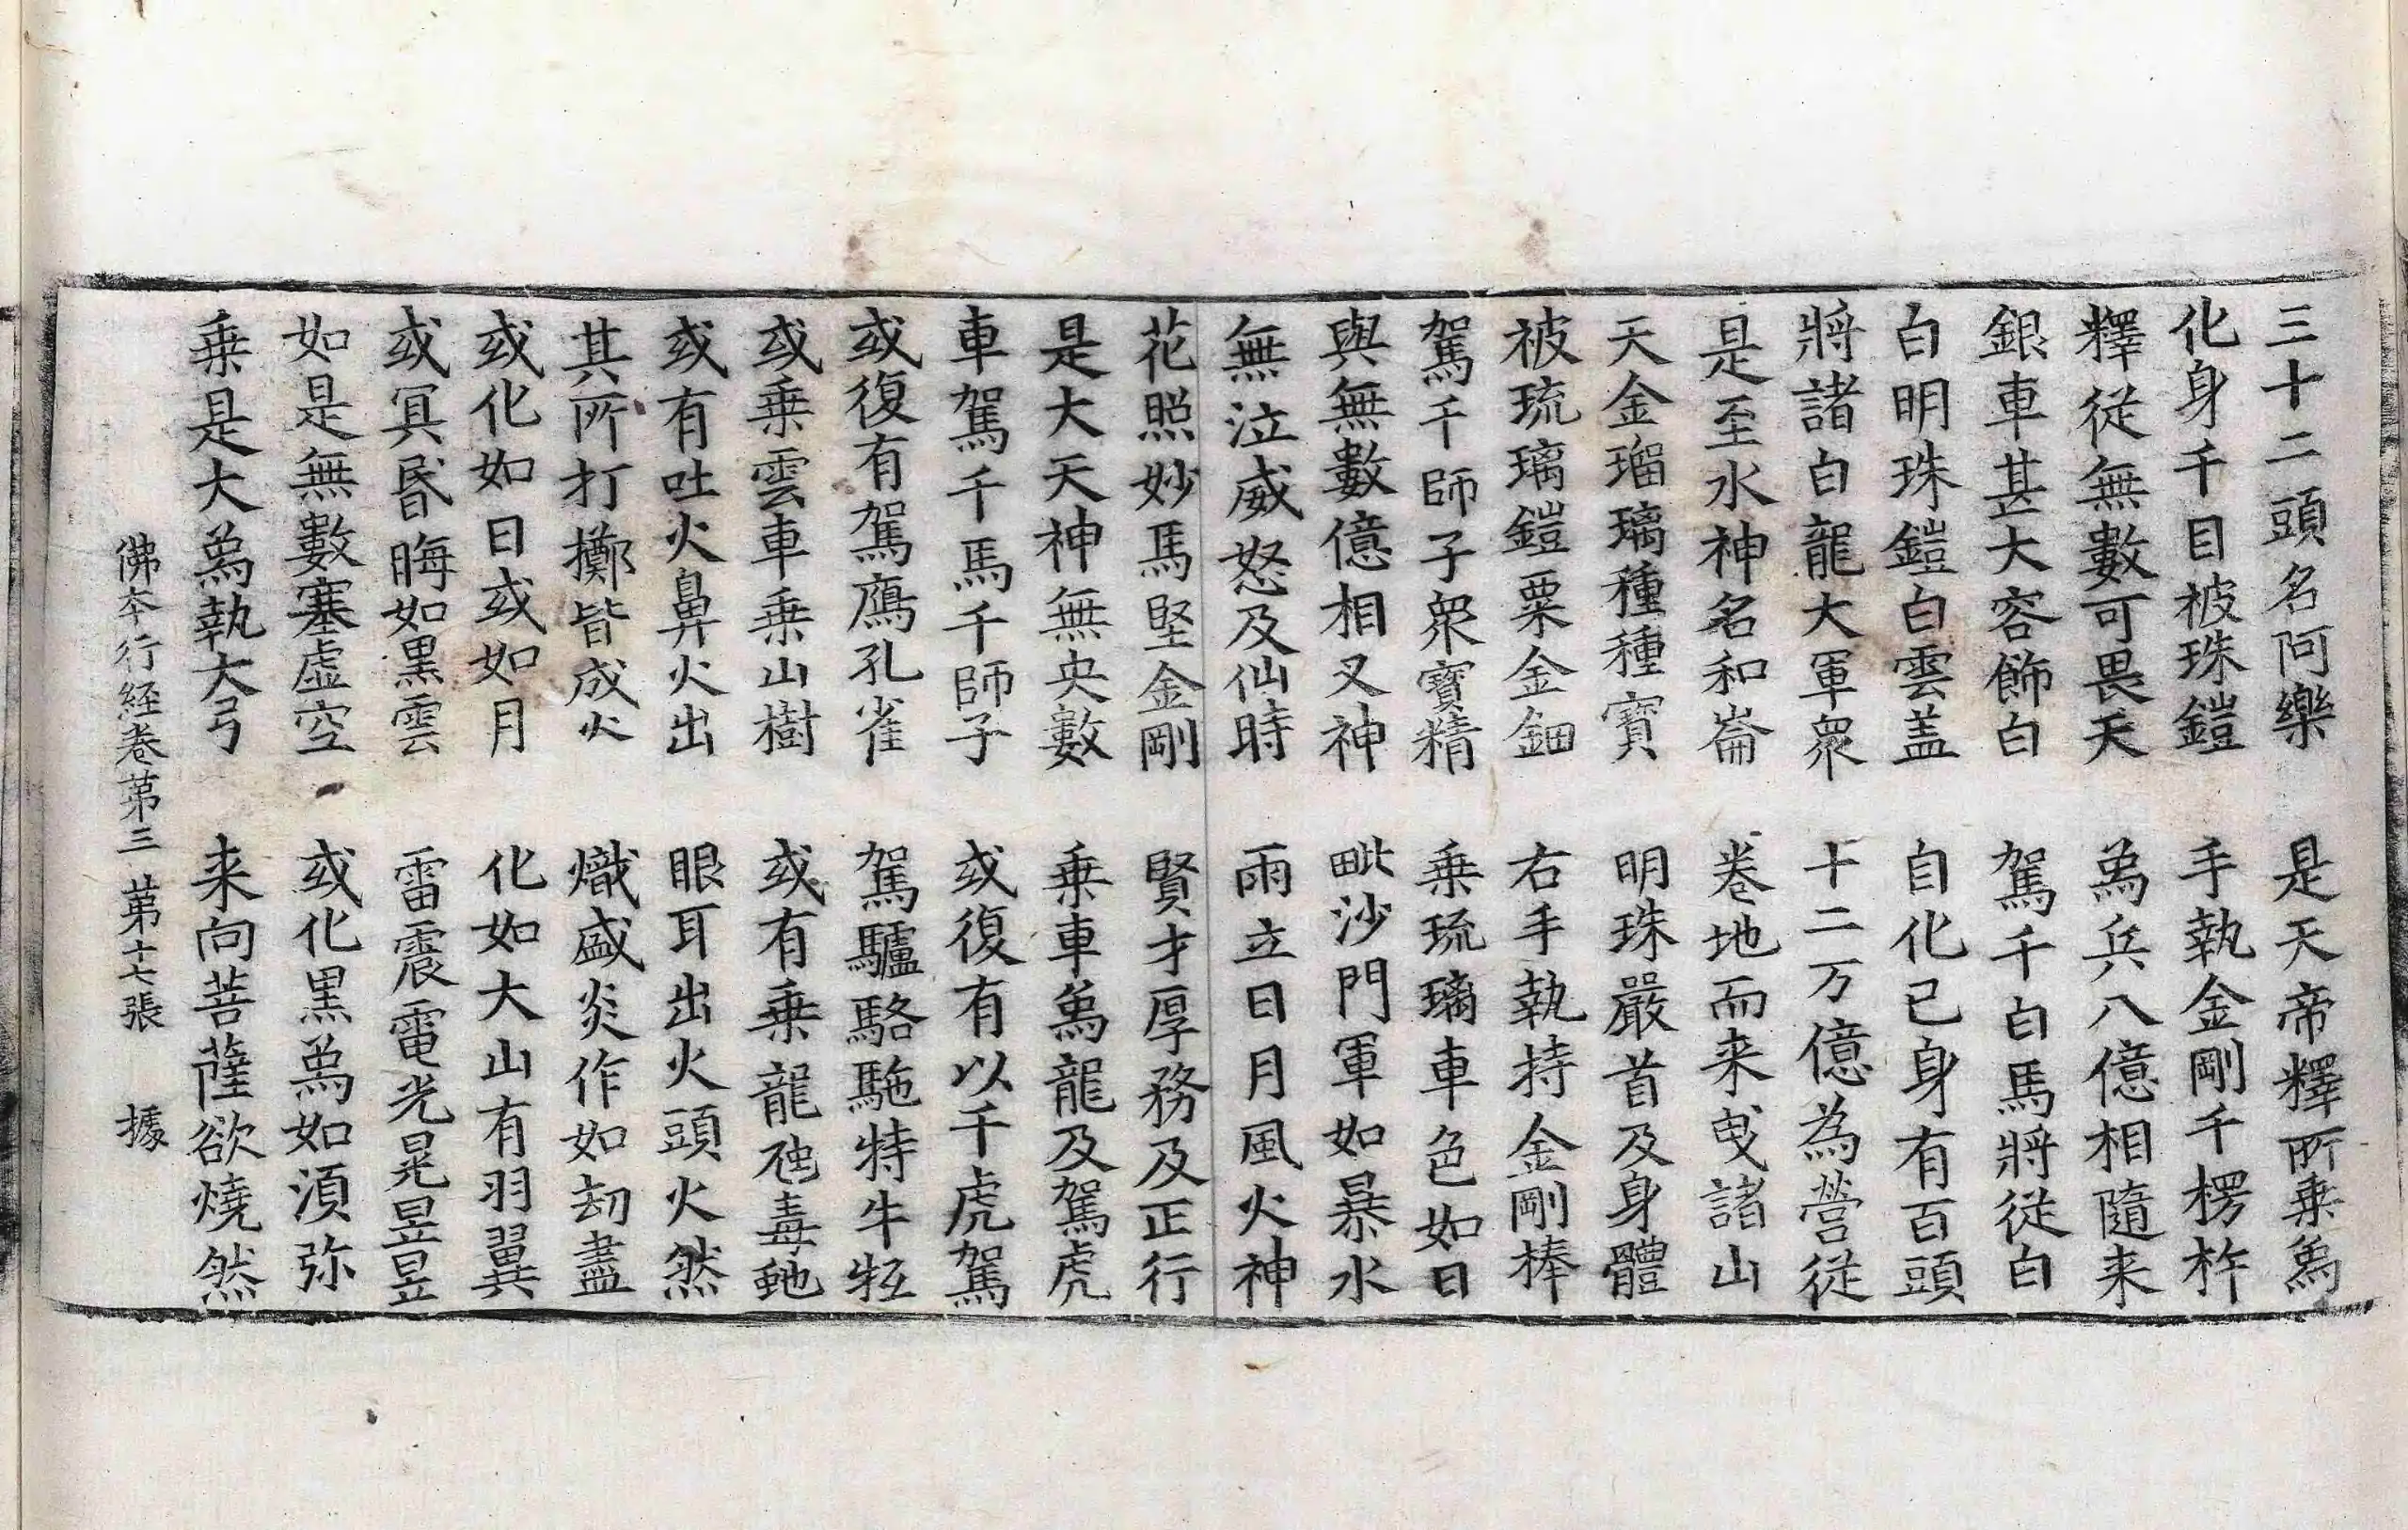 三十二頭名阿樂　是天帝釋所乗爲
化身千目被珠鎧　手執金剛千楞杵
釋從無數可畏天　爲兵八億相隨来
銀車甚大容飾白　駕千白馬將從白
白明珠鎧白雲盖　自化己身有百頭
將諸白龍大軍衆　十二万億為營從
是至水神名和崙　卷地而来曳諸山
天金瑠璃種種寳　明珠嚴首及身體
被琉璃鎧粟金鈿　右手執持金剛棒
駕千師子衆寳精　乗琉璃車色如日
與無數億相叉神　毗沙門軍如暴水
無泣威怒及仙時　雨立日月風火神
花照妙馬堅金剛　賢才厚務及正行
是大天神無央數　乗車爲龍及駕虎
車駕千馬千師子　或復有以千虎駕
或復有駕鴈孔雀　駕驢駱駞特牛牭
或乗雲車乗山樹　或有乗龍虺毒虵
或有吐火鼻火出　眼耳出火頭火然
其所打擲皆成火　熾盛炎作如劫盡
或化如日或如月　化如大山有羽翼
或冥昬晦如黒雲　雷震電光晃昱昱
如是無數塞虚空　或化黒爲如湏弥
乗是大爲執大弓　来向菩薩欲燒然
佛本行經卷第三　第十七張　據